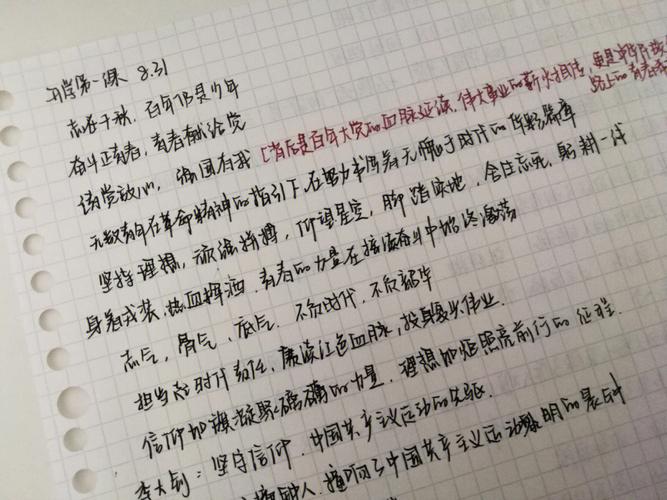 开学第一课 8.31
志在千秋，百年仍是少年
奋斗正青春，青春献给党
请党放心，强国有我 [背后是百年大党的血脉延续，伟大事业的薪火相传，更是
路上的青春
无数青年在革命精神的指引下，在努力书写着无愧于时代的华彩篇章
坚持理想，浪漫拼搏，仰望星空，脚踏实地，舍生忘死，躬耕一线
身着戎装，热血挥洒，青春的力量在接续奋斗中始终激荡
志气，骨气，底气，不负时代，不负韶华
担当起时代责任，赓续红色血脉，投身复兴伟业.
信仰如旗凝聚磅礴的力量，理想如炬照亮前行的征程.
李大钊：坚守信仰，中国共产主义运动的先驱.
撞钟人，撞响了中国共产主义运动黎明的晨钟